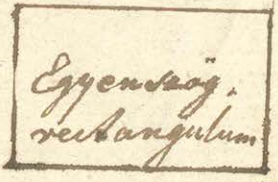 Egyenszög.
rectangulum